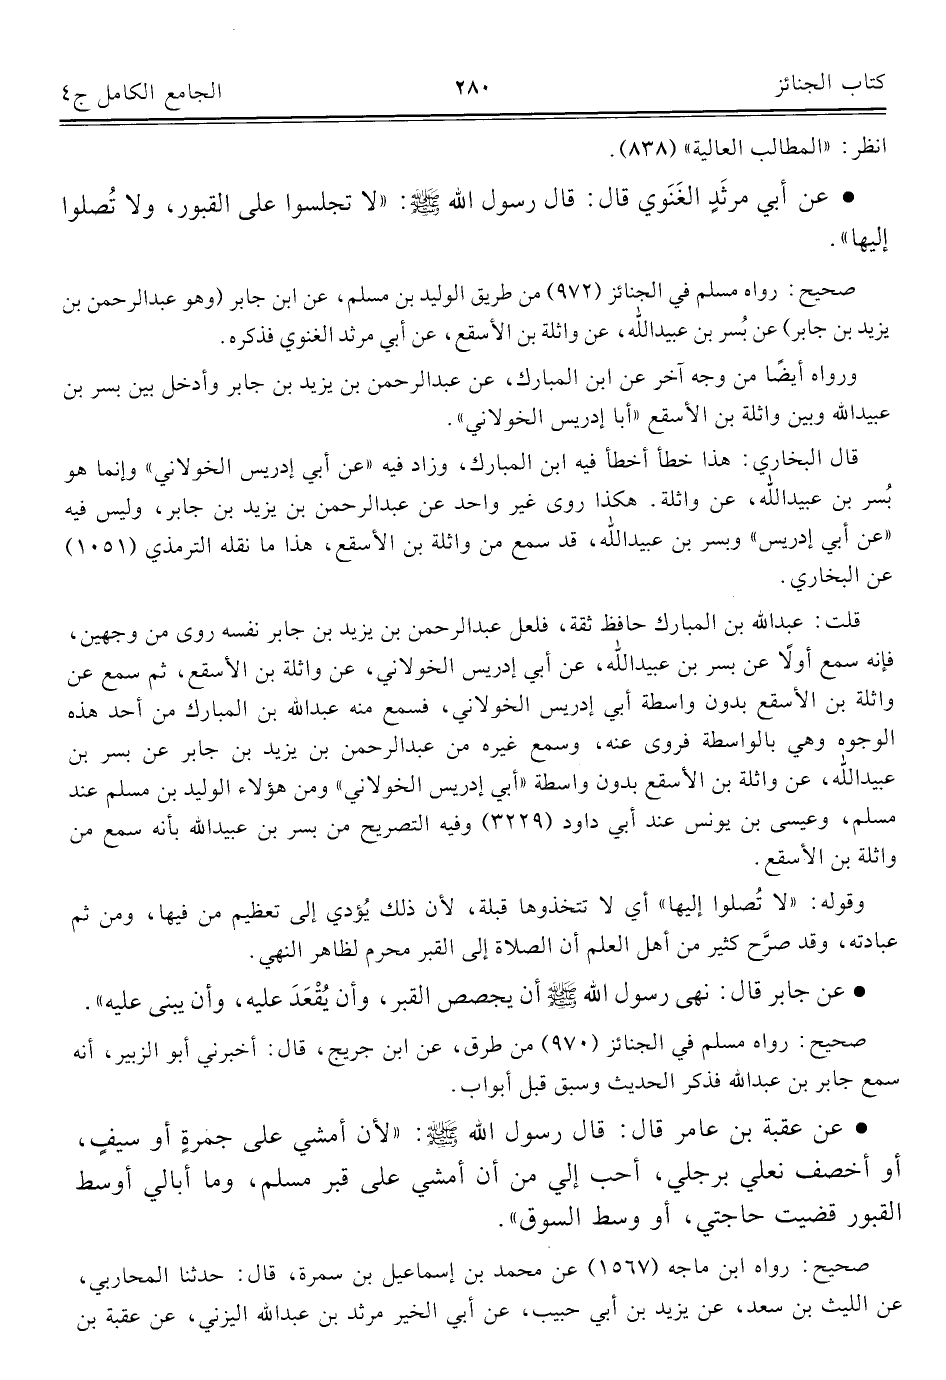 كتاب الجنائز ٢٨٠ الجامع الكامل ج٤
انظر: «المطالب العالية» (٨٣٨).
• عن أبي مرثَدٍ الغَنَوي قال: قال رسول الله ﷺ: «لا تجلسوا على القبور، ولا تُصلوا
إليها».
صحيح: رواه مسلم في الجنائز (٩٧٢) من طريق الوليد بن مسلم، عن ابن جابر (وهو عبدالرحمن بن
يزيد بن جابر) عن بُسر بن عبيدالله، عن واثلة بن الأسقع، عن أبي مرثد الغنوي فذكره.
ورواه أيضًا من وجه آخر عن ابن المبارك، عن عبدالرحمن بن يزيد بن جابر وأدخل بين بسر بن
عبيدالله وبين واثلة بن الأسقع «أبا إدريس الخولاني».
قال البخاري: هذا خطأ أخطأ فيه ابن المبارك، وزاد فيه «عن أبي إدريس الخولاني» وإنما هو
بُسر بن عبيدالله، عن واثلة. هكذا روى غير واحد عن عبدالرحمن بن يزيد بن جابر، وليس فيه
«عن أبي إدريس» وبسر بن عبيدالله، قد سمع من واثلة بن الأسقع، هذا ما نقله الترمذي (١٠٥١)
عن البخاري.
قلت: عبدالله بن المبارك حافظ ثقة، فلعل عبدالرحمن بن يزيد بن جابر نفسه روى من وجهين،
فإنه سمع أولًا عن بسر بن عبيدالله، عن أبي إدريس الخولاني، عن واثلة بن الأسقع، ثم سمع عن
واثلة بن الأسقع بدون واسطة أبي إدريس الخولاني، فسمع منه عبدالله بن المبارك من أحد هذه
الوجوه وهي بالواسطة فروى عنه، وسمع غيره من عبدالرحمن بن يزيد بن جابر عن بسر بن
عبيدالله، عن واثلة بن الأسقع بدون واسطة «أبي إدريس الخولاني» ومن هؤلاء الوليد بن مسلم عند
مسلم، وعيسى بن يونس عند أبي داود (٣٢٢٩) وفيه التصريح من بسر بن عبيدالله بأنه سمع من
واثلة بن الأسقع.
وقوله: «لا تُصلوا إليها» أي لا تتخذوها قبلة، لأن ذلك يُؤدي إلى تعظيم من فيها، ومن ثم
عبادته، وقد صرَّح كثير من أهل العلم أن الصلاة إلى القبر محرم لظاهر النهي.
• عن جابر قال: نهى رسول الله ﷺ أن يجصص القبر، وأن يُقْعَدَ عليه، وأن يبنى عليه».
صحيح: رواه مسلم في الجنائز (٩٧٠) من طرق، عن ابن جريج، قال: أخبرني أبو الزبير، أنه
سمع جابر بن عبدالله فذكر الحديث وسبق قبل أبواب.
• عن عقبة بن عامر قال: قال رسول الله ﷺ: «لأن أمشي على جمرةٍ أو سيفٍ،
أو أخصف نعلي برجلي، أحب إلي من أن أمشي على قبر مسلم، وما أبالي أوسط
القبور قضيت حاجتي، أو وسط السوق».
صحيح: رواه ابن ماجه (١٥٦٧) عن محمد بن إسماعيل بن سمرة، قال: حدثنا المحاربي،
عن الليث بن سعد، عن يزيد بن أبي حبيب، عن أبي الخير مرثد بن عبدالله اليزني، عن عقبة بن